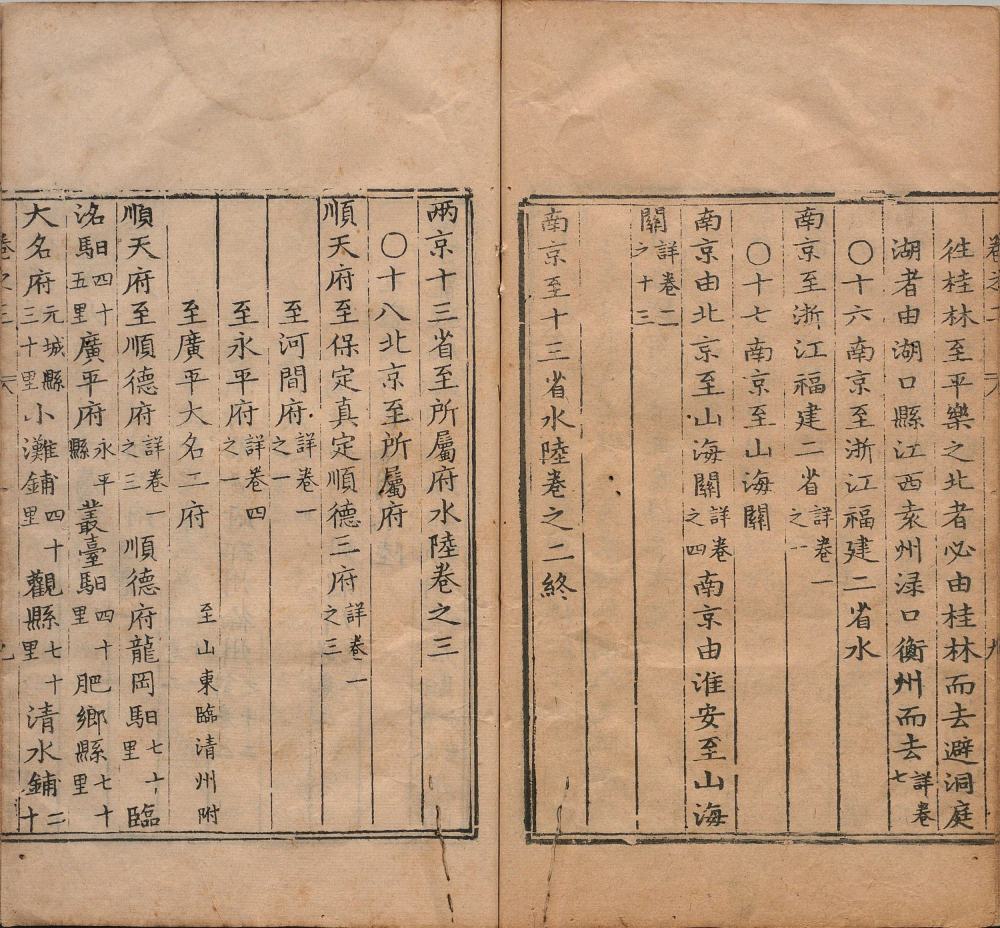 徃桂林至平樂之北者必由桂林而去避洞庭
湖者由湖口縣江西袁州渌口衡州而去詳卷七
〇十六南京至浙江福建二省水
南京至浙江福建二省詳卷一之一
〇十七南京至山海關
南京由北京至山海關詳卷之四南京由淮安至山海
關詳卷二之十三
南京至十三省水陸卷之二終
兩京十三省至所屬府水陸卷之三
〇十八北京至所屬府
順天府至保定真定順德三府詳卷一之三
至河間府詳卷一之一
至永平府詳卷四之一
至廣平大名二府至山東臨清州附
順天府至順德府詳卷一之三順德府龍岡馹七十里臨
洺馹四十五里廣平府永平縣叢臺馹四十里肥鄉縣七十里
大名府元城縣三十里小灘鋪四十里觀縣七十里清水鋪二十
卷之三